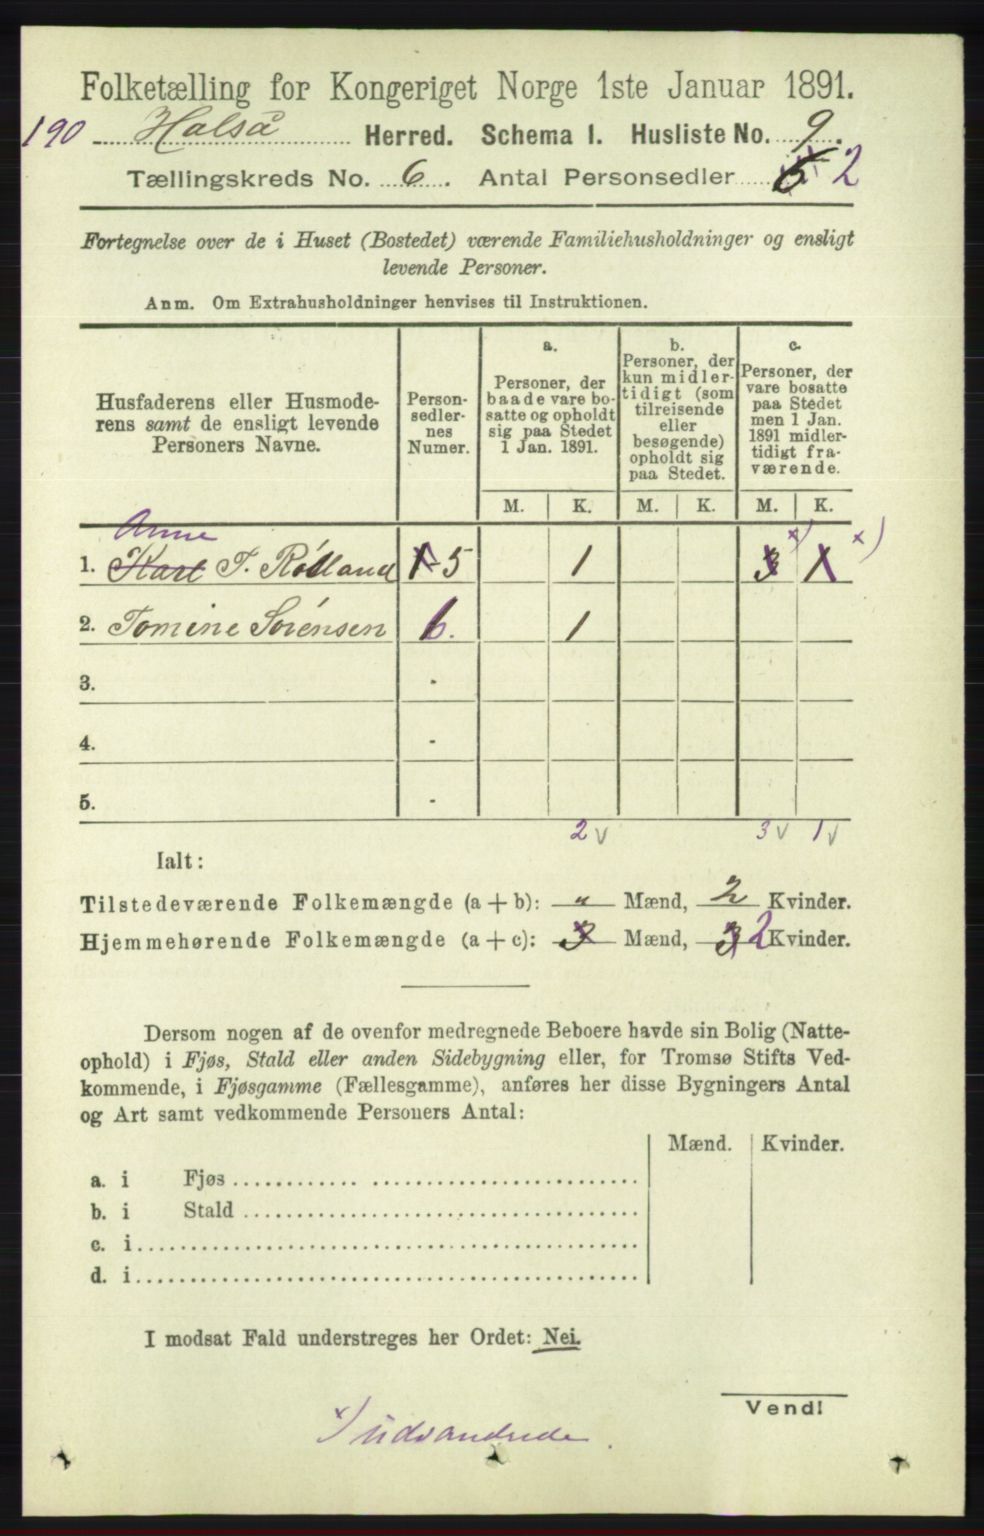 Folketælling for Kongeriget Norge 1ste Januar 1891.
190 Halså Herred. Schema I. Husliste No. 9.
Tællingskreds No. 6. Antal Personsedler 2
Fortegnelse over de i Huset (Bostedet) værende Familiehusholdninger og ensligt
levende Personer.
Anm. Om Extrahusholdninger henvises til Instruktionen.
Husfaderens eller Husmode-
rens samt de ensligt levende
Personers Navne.
Person-
sedler-
nes
Numer.
a.
Personer, der
baade vare bo-
satte og opholdt
sig paa Stedet
1 Jan. 1891.
b.
Personer, der
kun midler-
tidigt (som
tilreisende
eller
besøgende)
opholdt sig
paa Stedet.
c.
Personer, der
vare bosatte
paa Stedet
men 1 Jan.
1891 midler-
tidigt fra-
værende.
M. K. M. K. M. K.
Anne
1. Karl T. Røiland 1-5 1 3 x) 1 x)
2. Tomine Sørensen 6. 1
3.
4.
5.
2 v 3 v 1 v
Ialt:
Tilstedeværende Folkemængde (a + b): " Mænd, 2 Kvinder.
Hjemmehørende Folkemængde (a + c): 3 Mænd, 3 2 Kvinder.
Dersom nogen af de ovenfor medregnede Beboere havde sin Bolig (Natte-
ophold) i Fjøs, Stald eller anden Sidebygning eller, for Tromsø Stifts Ved-
kommende, i Fjøsgamme (Fællesgamme), anføres her disse Bygningers Antal
og Art samt vedkommende Personers Antal:
Mænd. Kvinder.
a. i Fjøs
b. i Stald
c. i
d. i
I modsat Fald understreges her Ordet: Nei.
Vend!
x) udvandrede.